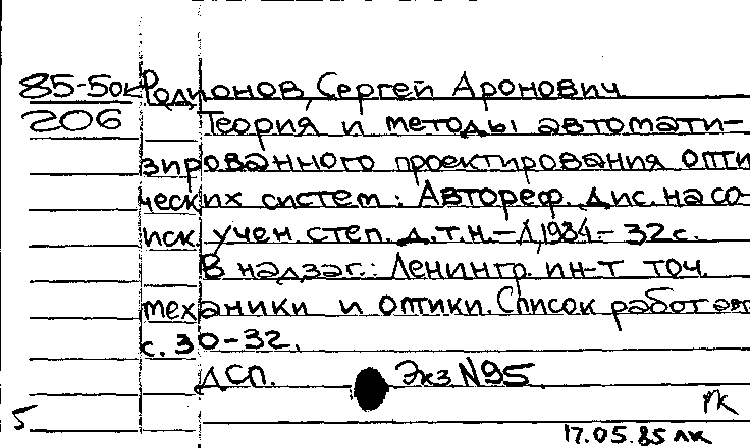 85-5ок Родионов, Сергей Аронович
206 Теория и методы автомати-
зированного проектирования опти
ческих систем: Автореф. дис. на со-
иск. учен. степ. д.т.н. - Л, 1984. - 32 с.
В надзаг.: Ленингр. ин-т точ.
механики и оптики. Список работ авт
с. 30-32.
ДСП. Экз N95
ПК
5 17.05.85 лк